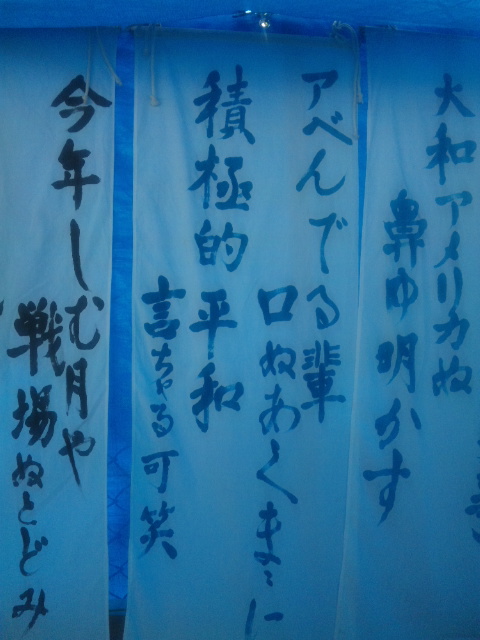 大和アメリカぬ
鼻ゆ明かす
アベんでる輩
口ぬあくまゝに
積極的平和
言ちゃる可笑
今年しむ月や
戦場ぬとどみ